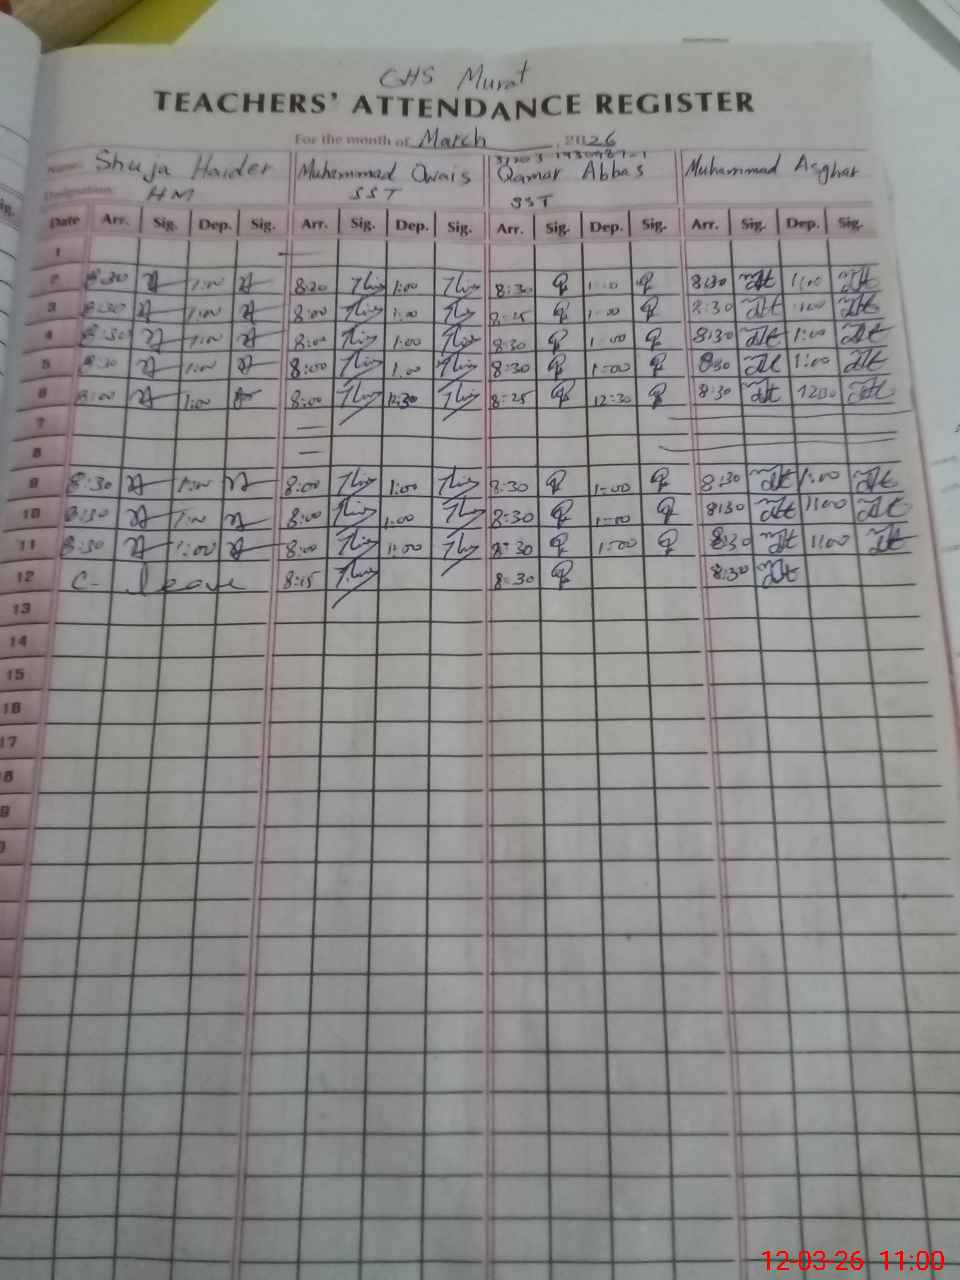 GHS Murat
TEACHERS' ATTENDANCE REGISTER
For the month of March, 2026
Name: Shuja Haider Muhammad Owais Qamar Abbas Muhammad Asghar
Designation: HM SST SST
Date Arr. Sig. Dep. Sig. Arr. Sig. Dep. Sig. Arr. Sig. Dep. Sig. Arr. Sig. Dep. Sig.
1
2 8:30 1:00 8:20 1:00 8:30 1:00 8:30 1:00
3 8:30 1:00 8:00 1:00 8:25 1:00 8:30 1:00
4 8:30 1:00 8:00 1:00 8:30 1:00 8:30 1:00
5 8:30 1:00 8:00 1:00 8:30 1:00 8:30 1:00
6 8:00 1:00 8:00 12:30 8:25 12:30 8:30 12:30
7
8
9 8:30 1:00 8:00 1:00 8:30 1:00 8:30 1:00
10 8:30 1:00 8:00 1:00 8:30 1:00 8:30 1:00
11 8:30 1:00 8:00 1:00 8:30 1:00 8:30 1:00
12 C- leave 8:15 8:30 8:30
13
14
15
16
17
12-03-26 11:00